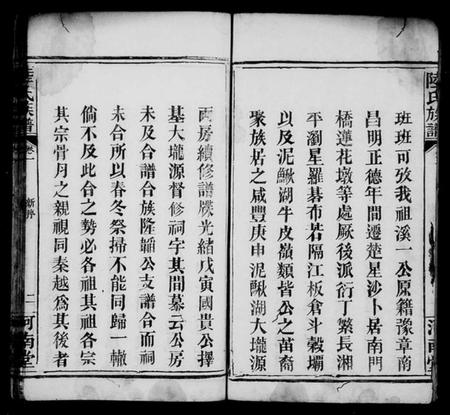 陸氏族譜
班班可攷我祖溪一公原籍豫章南
昌明正德年間遷楚星沙卜居南門
橋蓮花墩等處厥後派衍丁繁長湘
平瀏星羅碁布若隔江板倉斗穀壩
以及泥鰍湖牛皮嶺類皆公之苗裔
聚族居之咸豐庚申泥鰍湖大壠源
兩房續修譜牒光緒戊寅國貴公擇
基大壠源督修祠宇其間慕云公房
未及合譜合族隆鯿公支譜合而祠
未合所以春冬祭掃不能同歸一轍
倘不及此合之勢必各祖其祖各宗
其宗骨月之親視同秦越爲其後者
氏族譜
卷
新序
二
河南堂